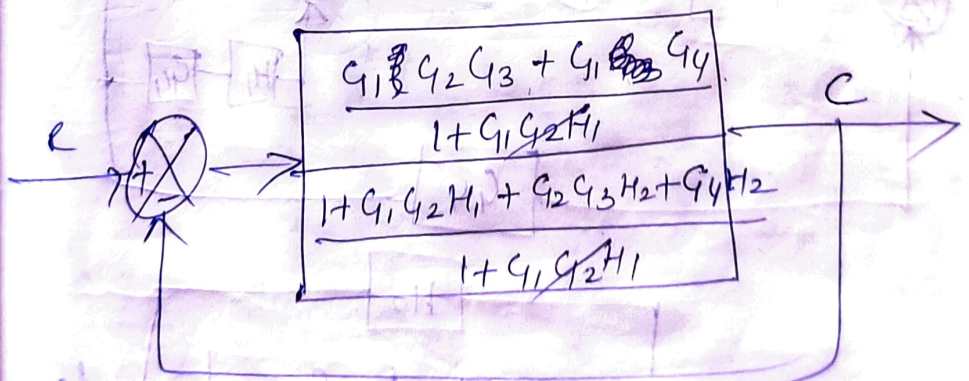 G1 G2 G3 + G1 G4
1 + G1 G2 H1
C
R
+
-
1 + G1 G2 H1 + G2 G3 H2 + G4 H2
1 + G1 G2 H1